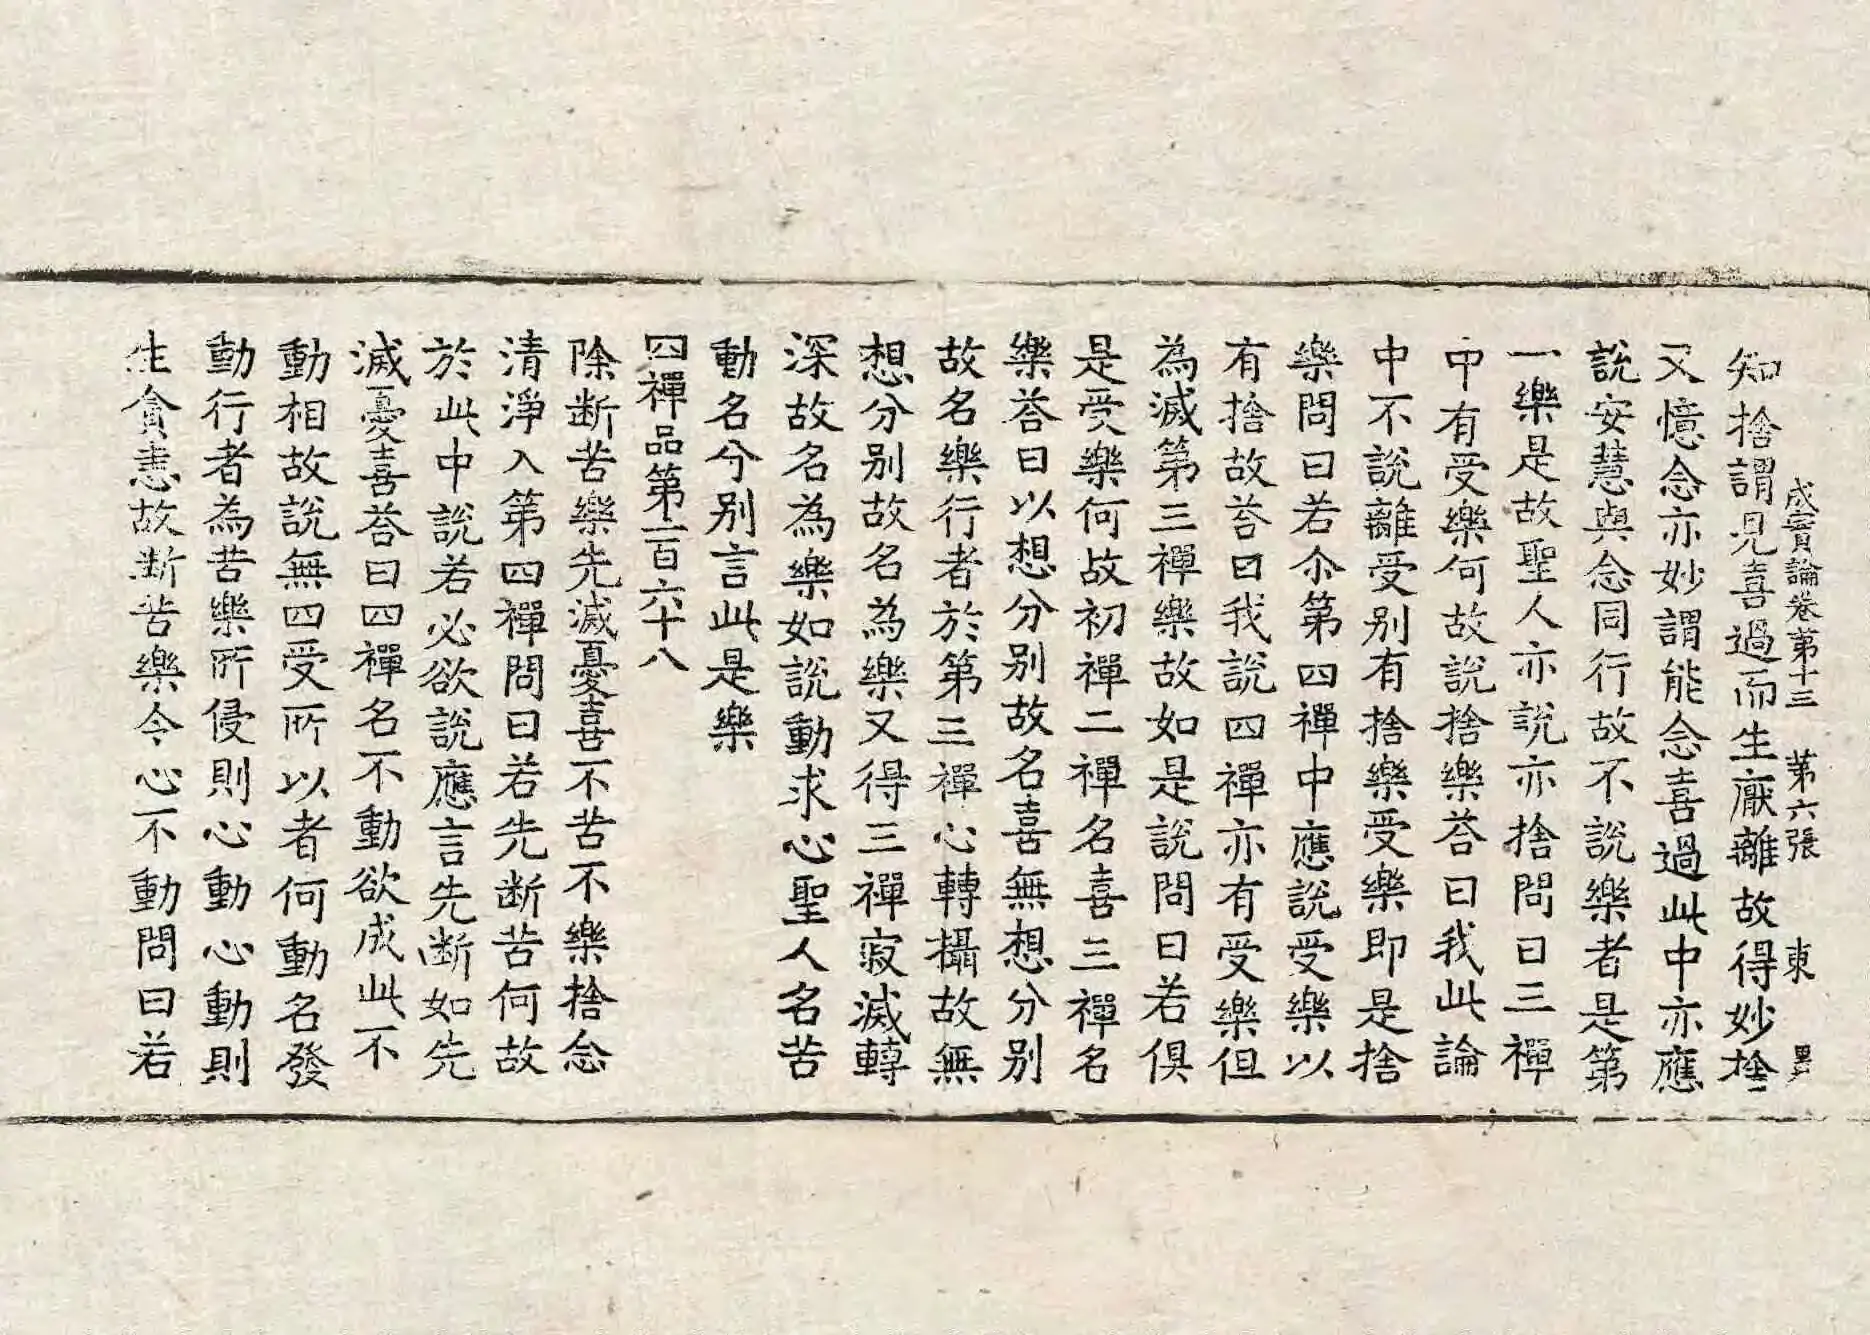 成實論卷第十三 第六張 東
知捨謂見喜過而生厭離故得妙捨
又憶念亦妙謂能念喜過此中亦應
說安慧與念同行故不說樂者是第
一樂是故聖人亦說亦捨問曰三禪
中有受樂何故說捨樂荅曰我此論
中不說離受別有捨樂受樂即是捨
樂問曰若尒第四禪中應說受樂以
有捨故荅曰我說四禪亦有受樂但
為滅第三禪樂故如是說問曰若俱
是受樂何故初禪二禪名喜三禪名
樂荅曰以想分別故名喜無想分別
故名樂行者於第三禪心轉攝故無
想分別故名為樂又得三禪寂滅轉
深故名為樂如說動求心聖人名苦
動名分別言此是樂
四禪品第一百六十八
除斷苦樂先滅憂喜不苦不樂捨念
清淨入第四禪問曰若先斷苦何故
於此中說若必欲說應言先斷如先
滅憂喜荅曰四禪名不動欲成此不
動相故說無四受所以者何動名發
動行者為苦樂所侵則心動心動則
生貪恚故斷苦樂令心不動問曰若